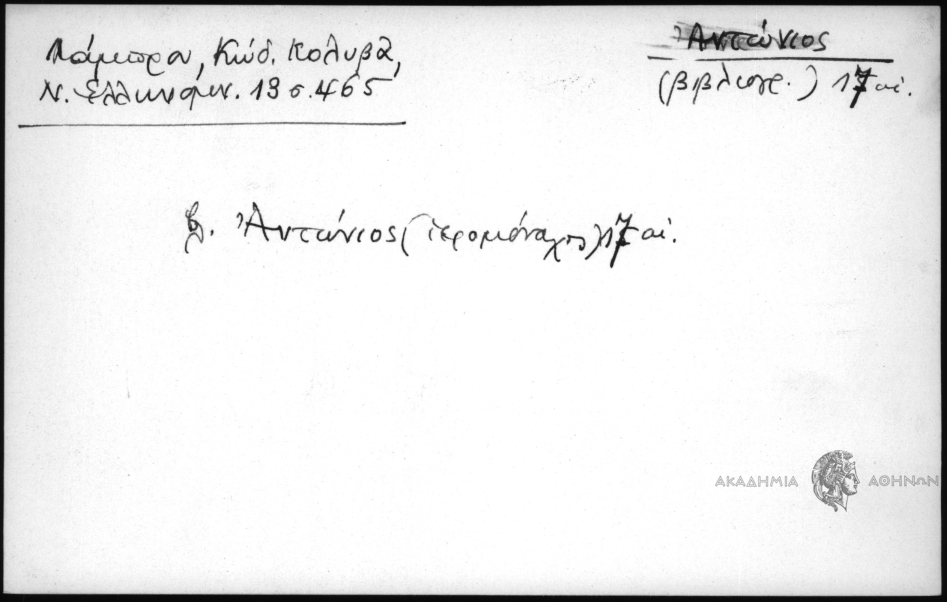 Λάμπρου, Κώδ. Κολυβᾶ,
Ν. Ἑλληνομν. 13 σ. 465
Ἀντώνιος
(βιβλιογρ.) 17 αἰ.
β. Ἀντώνιος (ἱερομόναχος) 17 αἰ.
ΑΚΑΔΗΜΙΑ ΑΘΗΝΩΝ